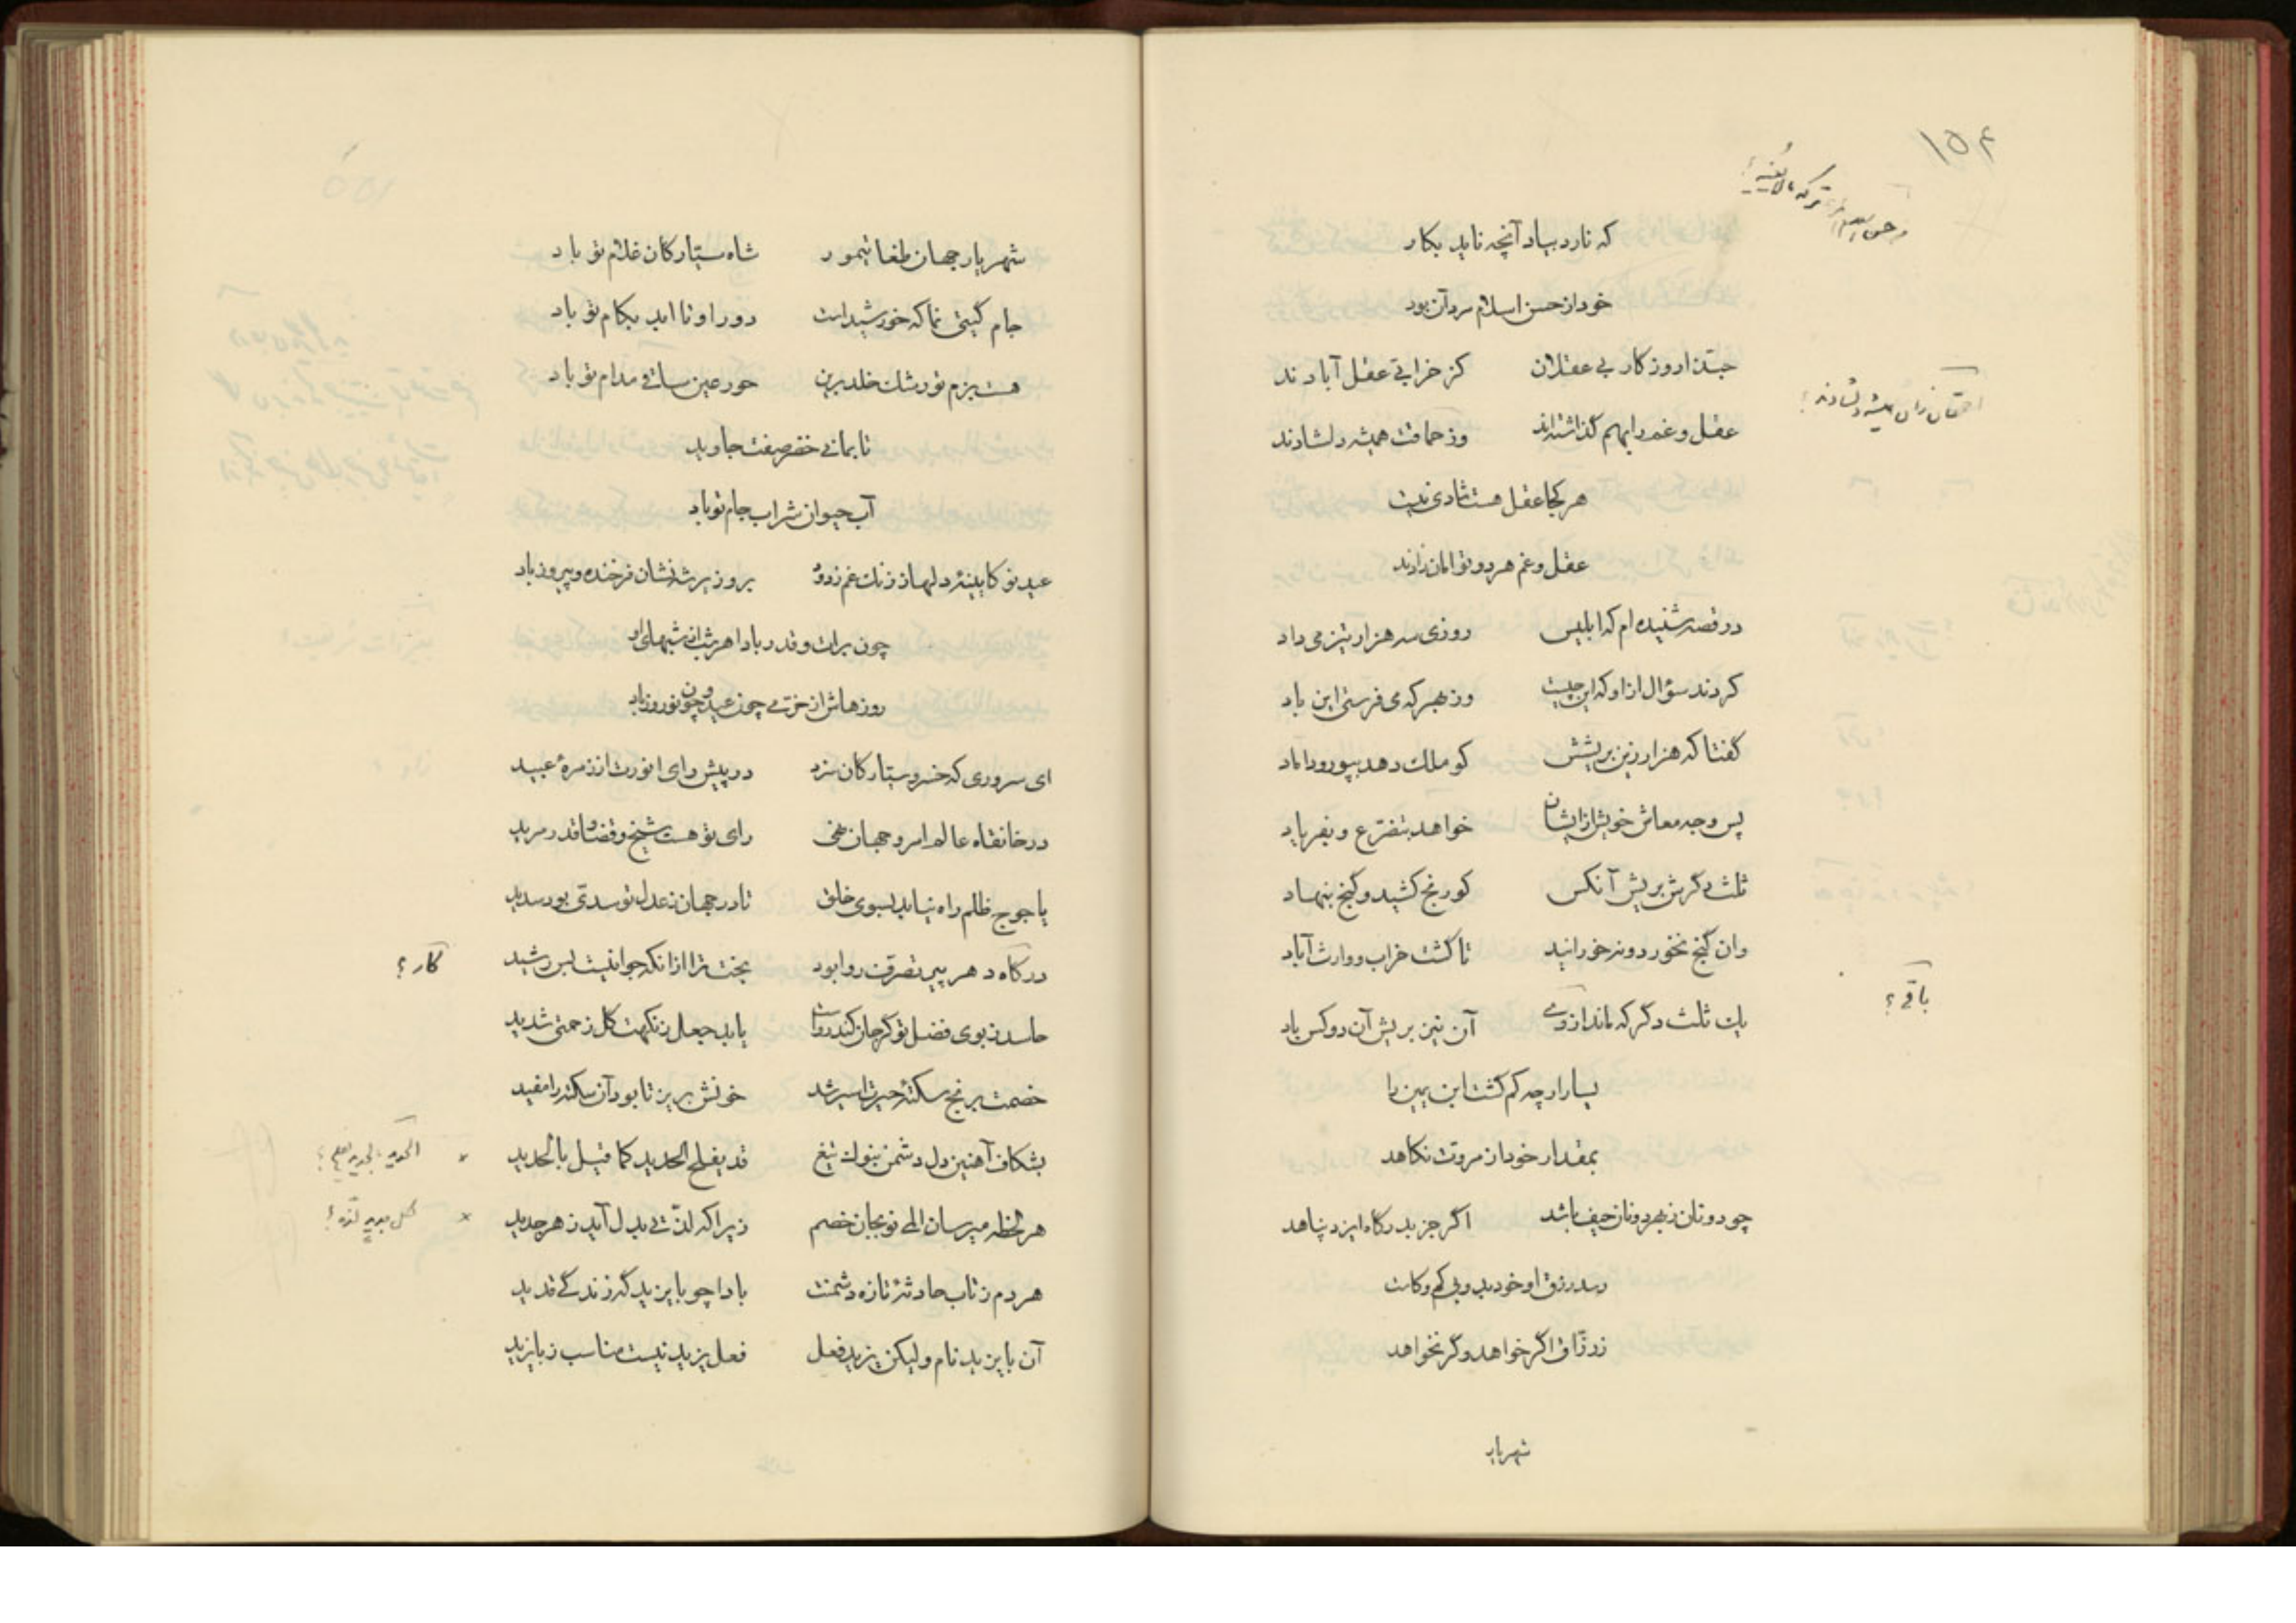 ۱۵۴
که نارد بیاد آنچه ناید بکار
خود از حسن اسلام مرد آن بود
حبّذا روزگار بی عقلان کز خرابی عقل آبادند
احمقان زان همیشه دلشادند؟
عقل و غم را بهم گذاشته‌اند وز حماقت همیشه دلشادند
هر کجا عقل هست شادی نیست
عقل و غم هر دو توامان زادند
در قصه شنیده‌ام که ابلیس روزی سه هزار تیز می داد
کردند سؤال از او که این چیست وز بهر که می فرستی این باد
گفتا که هزار زین بریشش کو ملک دهد بپور و داماد
پس وجه معاش خویش از ایشان خواهد بتضرّع و بفریاد
ثلث دگرش بریش آنکس کو رنج کشید و گنج بنهاد
وان گنج نخورد و نه خورانید تا گشت خراب و وارث آباد
یک ثلث دگر که ماند از وی آن نیز بریش آن دو کس باد
باقی؟
یسار ارچه کم گشت ابن یمین را
بمقدار خود از مروت نکاهد
چو دونان ز بهر دو نان حیف باشد اگر جز بدرگاه ایزد پناهد
رسد رزق او خود بد و بی کم و کاست
ز رزّاق اگر خواهد و گر نخواهد
شهریار
شهریار جهان طغاتیمور شاه سیّارگان غلام تو باد
جام گیتی نما که خورشید است دور او تا ابد بکام تو باد
هست بزم تو رشک خلد برین حور عین ساقی مدام تو باد
تا بمانی خضر صفت جاوید
آب حیوان شراب جام تو باد
عید نو کایینهٔ دلها ز زنگ غم زدود بر وزیر شه نشان فرخنده و پیروز باد
چون برات و قدر بادا هر شب از شبهای او
روزهاش از خرّمی چون عید و چون نوروز باد
ای سروری که خسرو سیّارگان سزد در پیش رای انورت از زمرهٔ عبید
در خانقاه عالم امر و جهان خلق رای تو هست شیخ و قضا و قدر مرید
یاجوج ظلم راه نیابد بسوی خلق تا در جهان ز عدل تو سدّی بود سدید
در گاه دهر پیر تصرّفت روا بود بخت ترا از آنکه جوانیست بس رشید
کار؟
حاسد ز بوی فضل تو گر جان کند رواست یابد جعل ز نکهت گل زحمتی شدید
خصمت برنج سکتهٔ حیرت اسیر شد خونش بریز تا بود آن سکته را مفید
بشکاف آهنین دل دشمن بنوک تیغ قد یفلح الحدید کما قیل بالحدید
هر لحظه میرسان المی نو بجان خصم زیرا که لذّتی بدل آید ز هر جدید
کل جدید لذة؟
هر دم ز تاب حادثهٔ تازه دشمنت بادا چو بایزید که زندگی قدید
آن بایزید نام ولیکن یزید فعل فعل یزید نیست مناسب ز بایزید